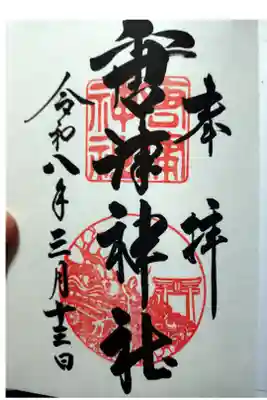 奉拝
唐津神社
令和八年三月十三日